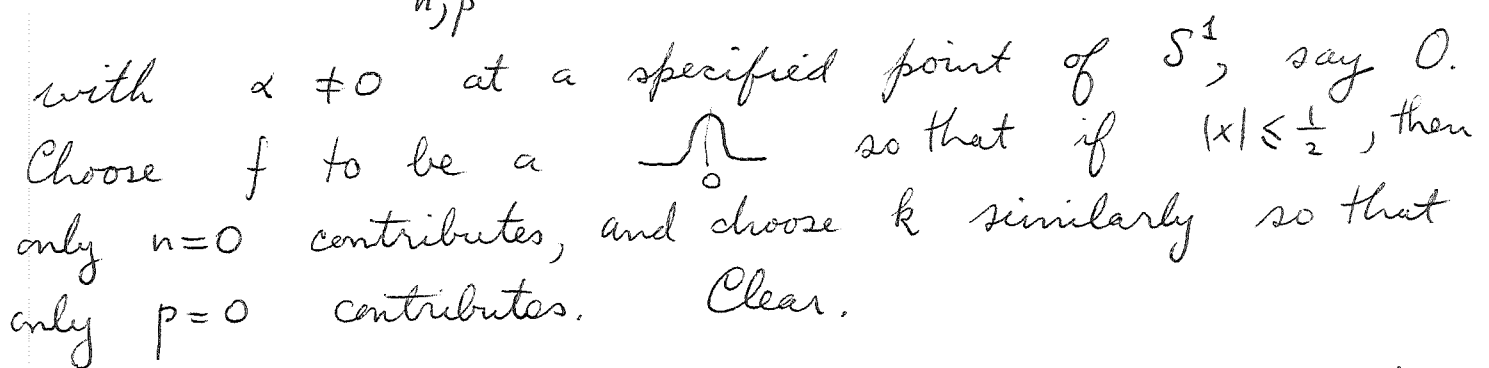 n, p
with α ≠ 0 at a specified point of S¹, say 0.
Choose f to be a so that if |x| ≤ 1/2, then
0
only n=0 contributes, and choose k similarly so that
only p=0 contributes. Clear.